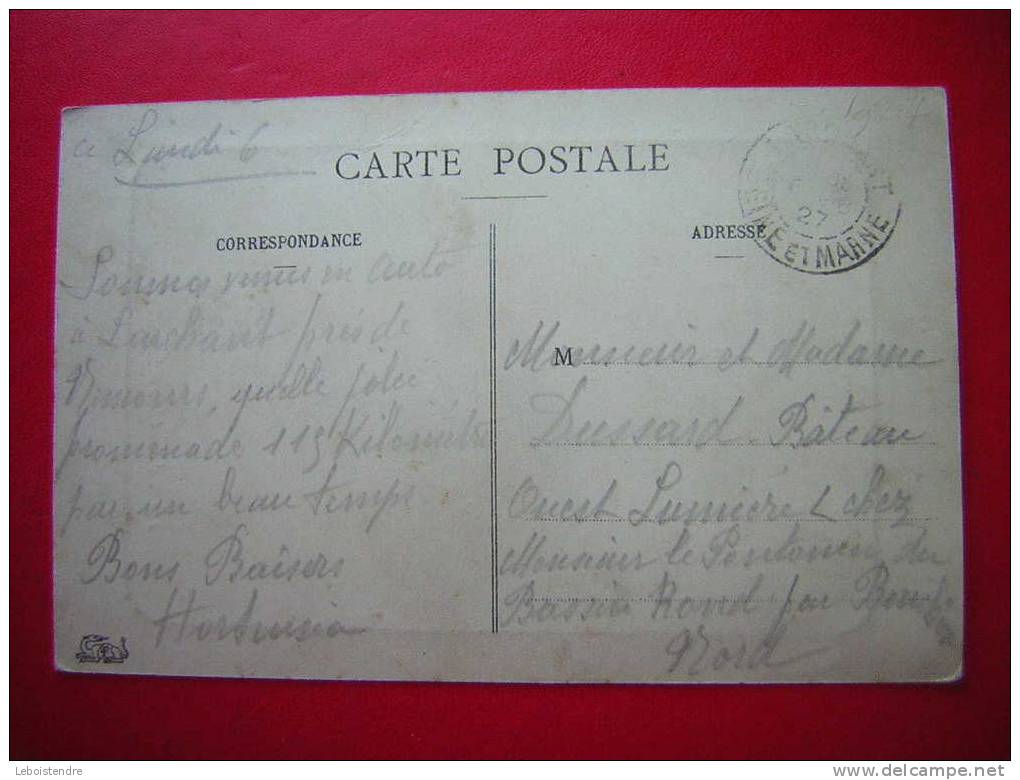 ce Lundi 6
CARTE POSTALE
SEINE ET MARNE
27
CORRESPONDANCE
Sommes venus en auto
à Larchant près de
Nemours, quelle jolie
promenade 115 Kilomètre
par un beau temps
Bons Baisers
Hortensia
ADRESSE
M
Monsieur et Madame
Dussard Bâteau
Ouest Lumière L chez
Monsieur le Pontonnier du
Bassin Rond par
Nord
Leboistendre
www.delcampe.net